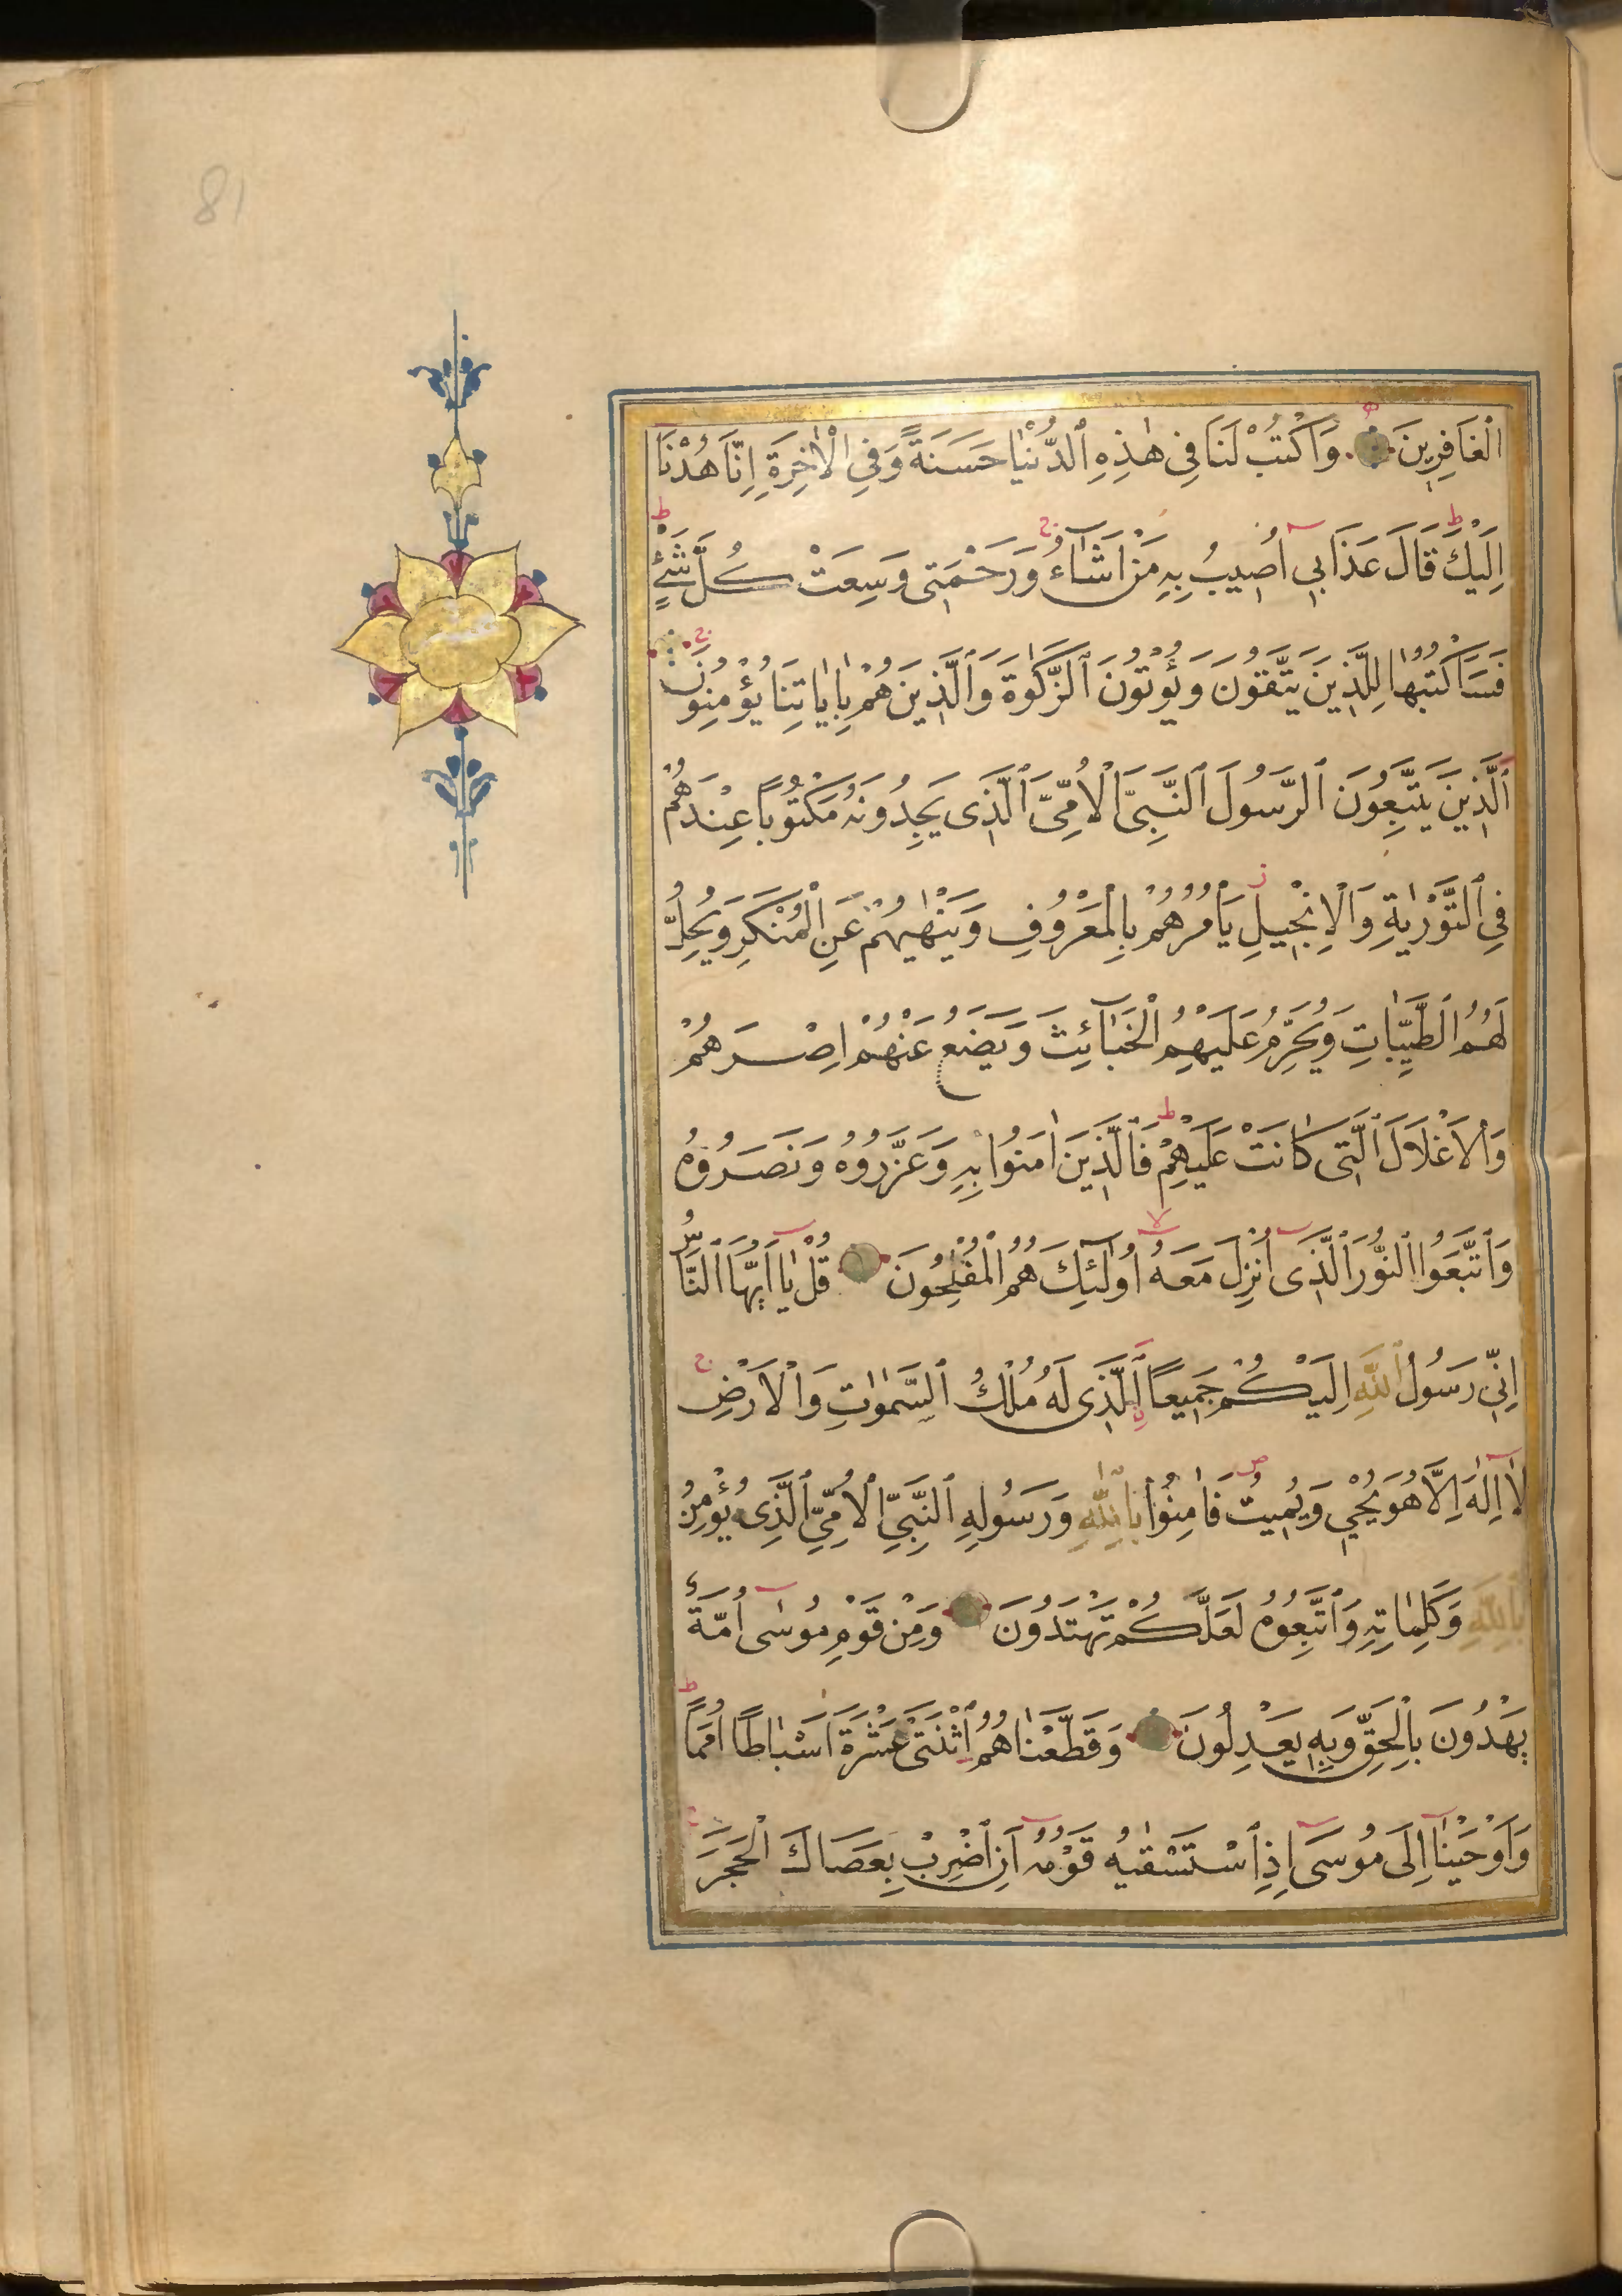 81
الْغَافِرِينَ وَاكْتُبْ لَنَا فِى هٰذِهِ ٱلدُّنْيَا حَسَنَةً وَفِى الْاٰخِرَةِ اِنَّا هُدْنَا
اِلَيْكَ قَالَ عَذَابِى اُصِيبُ بِهِ مَنْ اَشَٓاءُ وَرَحْمَتِى وَسِعَتْ كُلَّ شَىْءٍ
فَسَاَكْتُبُهَا لِلَّذِينَ يَتَّقُونَ وَيُؤْتُونَ ٱلزَّكٰوةَ وَٱلَّذِينَ هُمْ بِاٰيَاتِنَا يُؤْمِنُونَ
ٱلَّذِينَ يَتَّبِعُونَ ٱلرَّسُولَ ٱلنَّبِىَّ الْاُمِّىَّ ٱلَّذِى يَجِدُونَهُ مَكْتُوبًا عِنْدَهُمْ
فِى ٱلتَّوْرٰيةِ وَالْاِنْجِيلِ يَاْمُرُهُمْ بِالْمَعْرُوفِ وَيَنْهٰيهُمْ عَنِ الْمُنْكَرِ وَيُحِلُّ
لَهُمُ ٱلطَّيِّبَاتِ وَيُحَرِّمُ عَلَيْهِمُ الْخَبَٓائِثَ وَيَضَعُ عَنْهُمْ اِصْرَهُمْ
وَالْاَغْلَالَ ٱلَّتِى كَانَتْ عَلَيْهِمْ فَالَّذِينَ اٰمَنُوا بِهِ وَعَزَّرُوهُ وَنَصَرُوهُ
وَٱتَّبَعُوا ٱلنُّورَ ٱلَّذِى اُنْزِلَ مَعَهُ اُولٰٓئِكَ هُمُ الْمُفْلِحُونَ قُلْ يَا اَيُّهَا ٱلنَّاسُ
اِنِّى رَسُولُ ٱللّٰهِ اِلَيْكُمْ جَمِيعًا ٱلَّذِى لَهُ مُلْكُ ٱلسَّمٰوَاتِ وَالْاَرْضِ
لَٓا اِلٰهَ اِلَّا هُوَ يُحْيِى وَيُمِيتُ فَاٰمِنُوا بِاللّٰهِ وَرَسُولِهِ ٱلنَّبِىِّ الْاُمِّىِّ ٱلَّذِى يُؤْمِنُ
بِاللّٰهِ وَكَلِمَاتِهِ وَٱتَّبِعُوهُ لَعَلَّكُمْ تَهْتَدُونَ وَمِنْ قَوْمِ مُوسٰٓى اُمَّةٌ
يَهْدُونَ بِالْحَقِّ وَبِهِ يَعْدِلُونَ وَقَطَّعْنَاهُمُ ٱثْنَتَىْ عَشْرَةَ اَسْبَاطًا اُمَمًا
وَاَوْحَيْنَٓا اِلَى مُوسَى اِذِ ٱسْتَسْقٰيهُ قَوْمُهُ اَنِ ٱضْرِبْ بِعَصَاكَ الْحَجَرَ